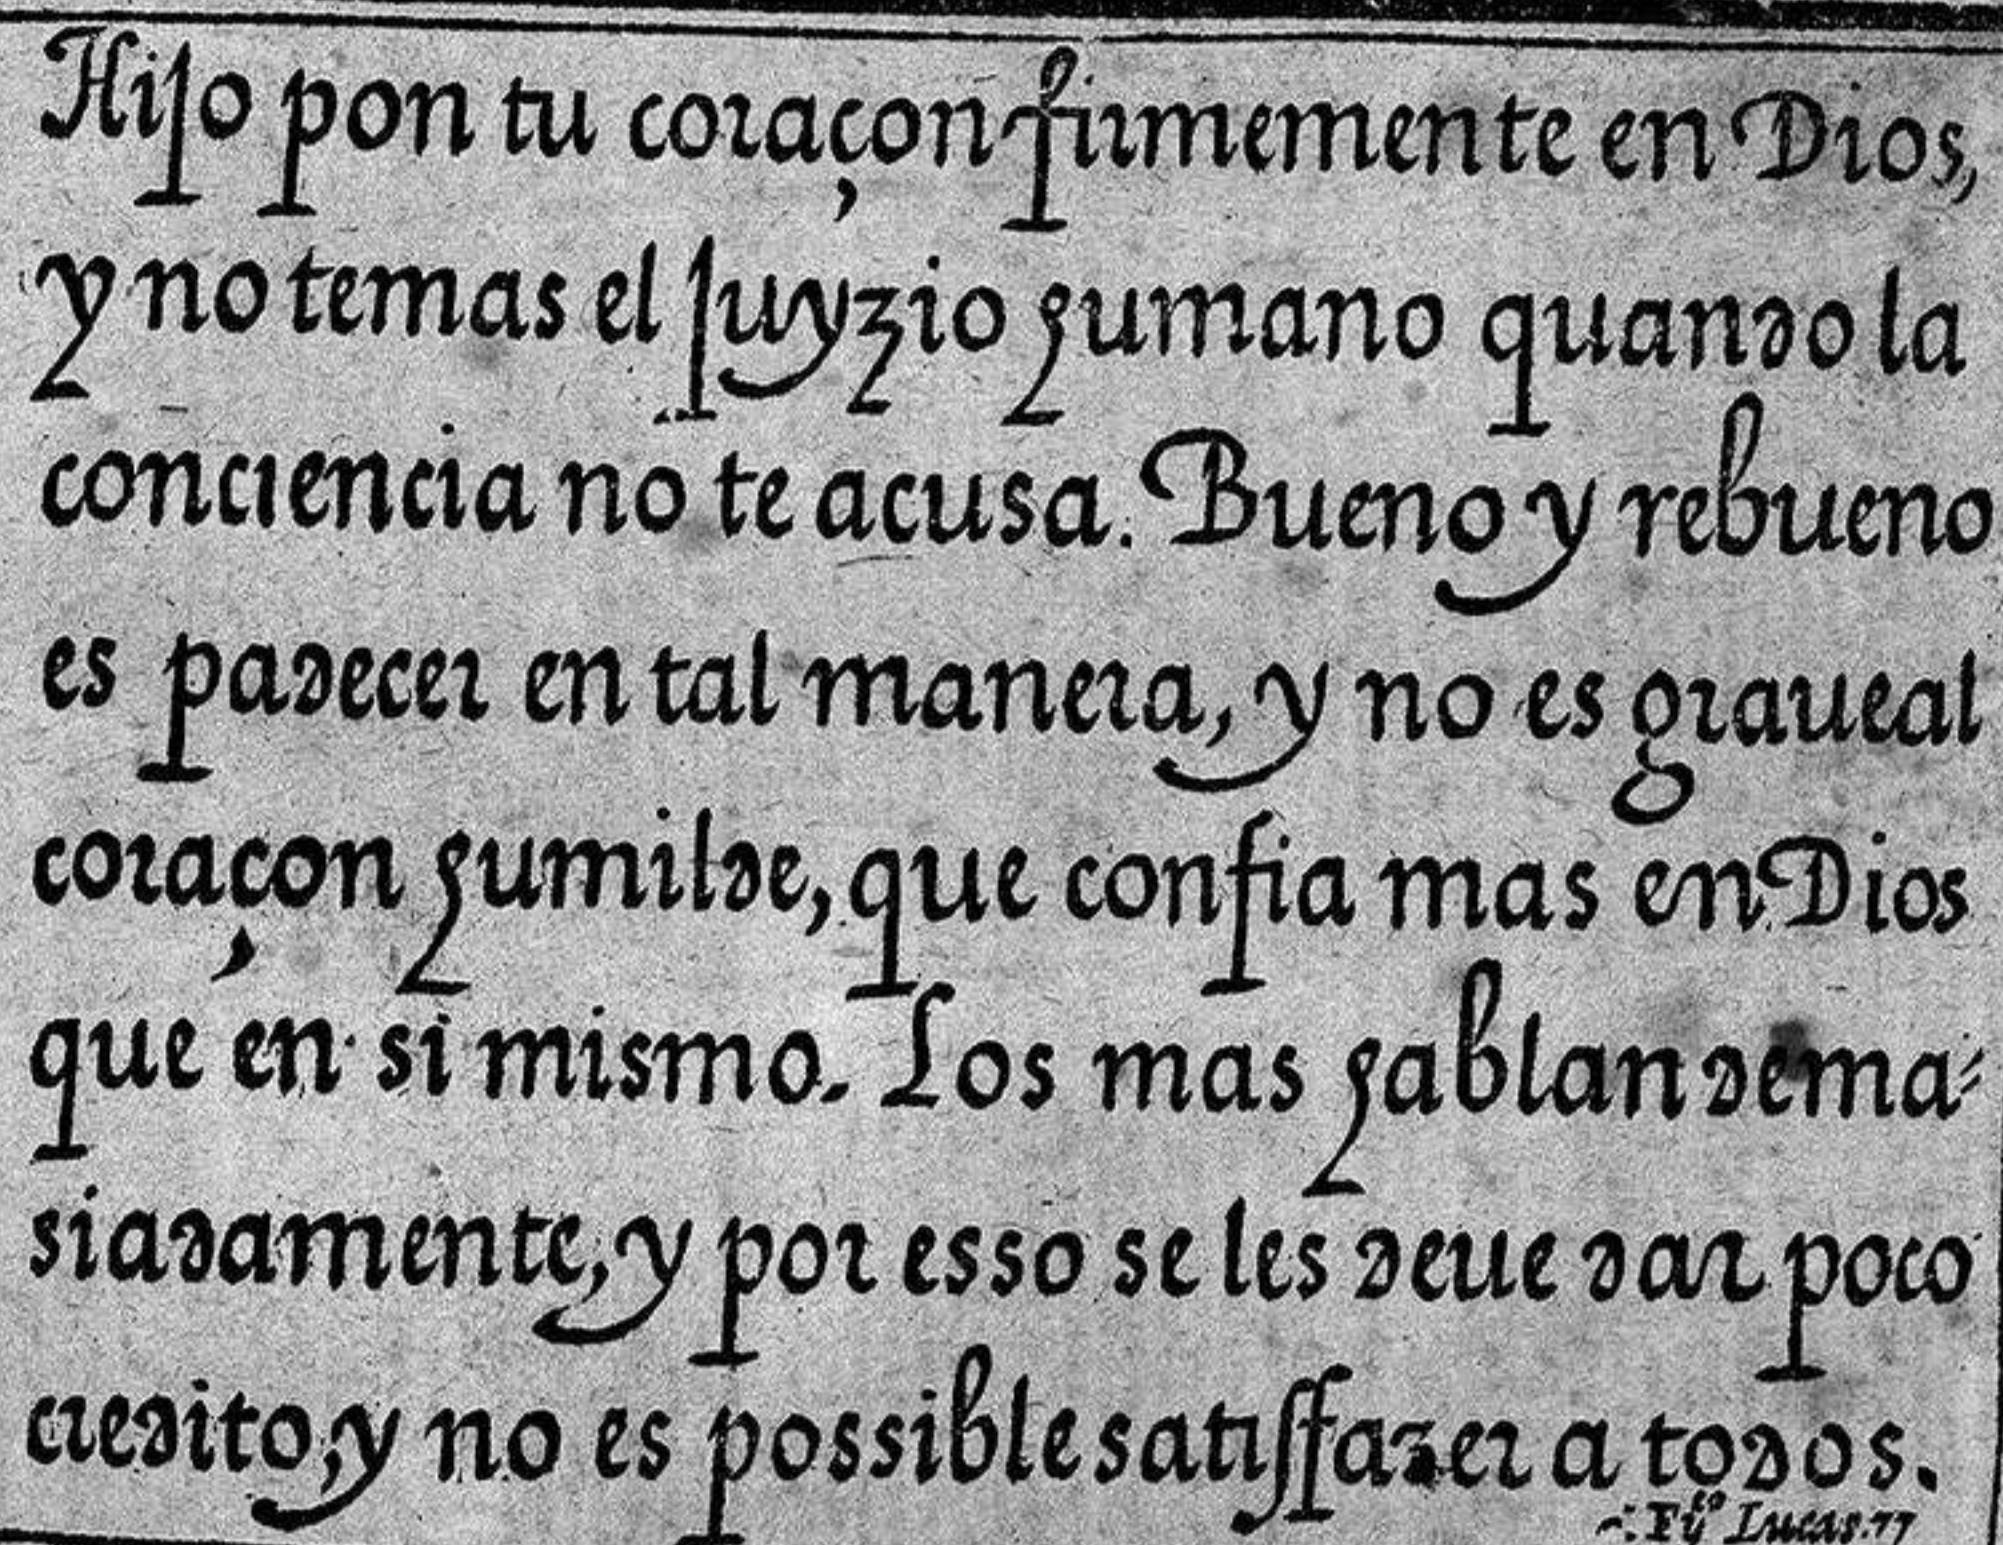 Hijo pon tu coraçon firmemente en Dios,
y no temas el juyzio humano quando la
conciencia no te acusa. Bueno y rebueno
es padecer en tal manera, y no es graue al
coraçon humilde, que confia mas en Dios
que en si mismo. Los mas hablan dema-
siadamente, y por esso se les deue dar poco
credito, y no es possible satisffazer a todos.
Lucas. 77